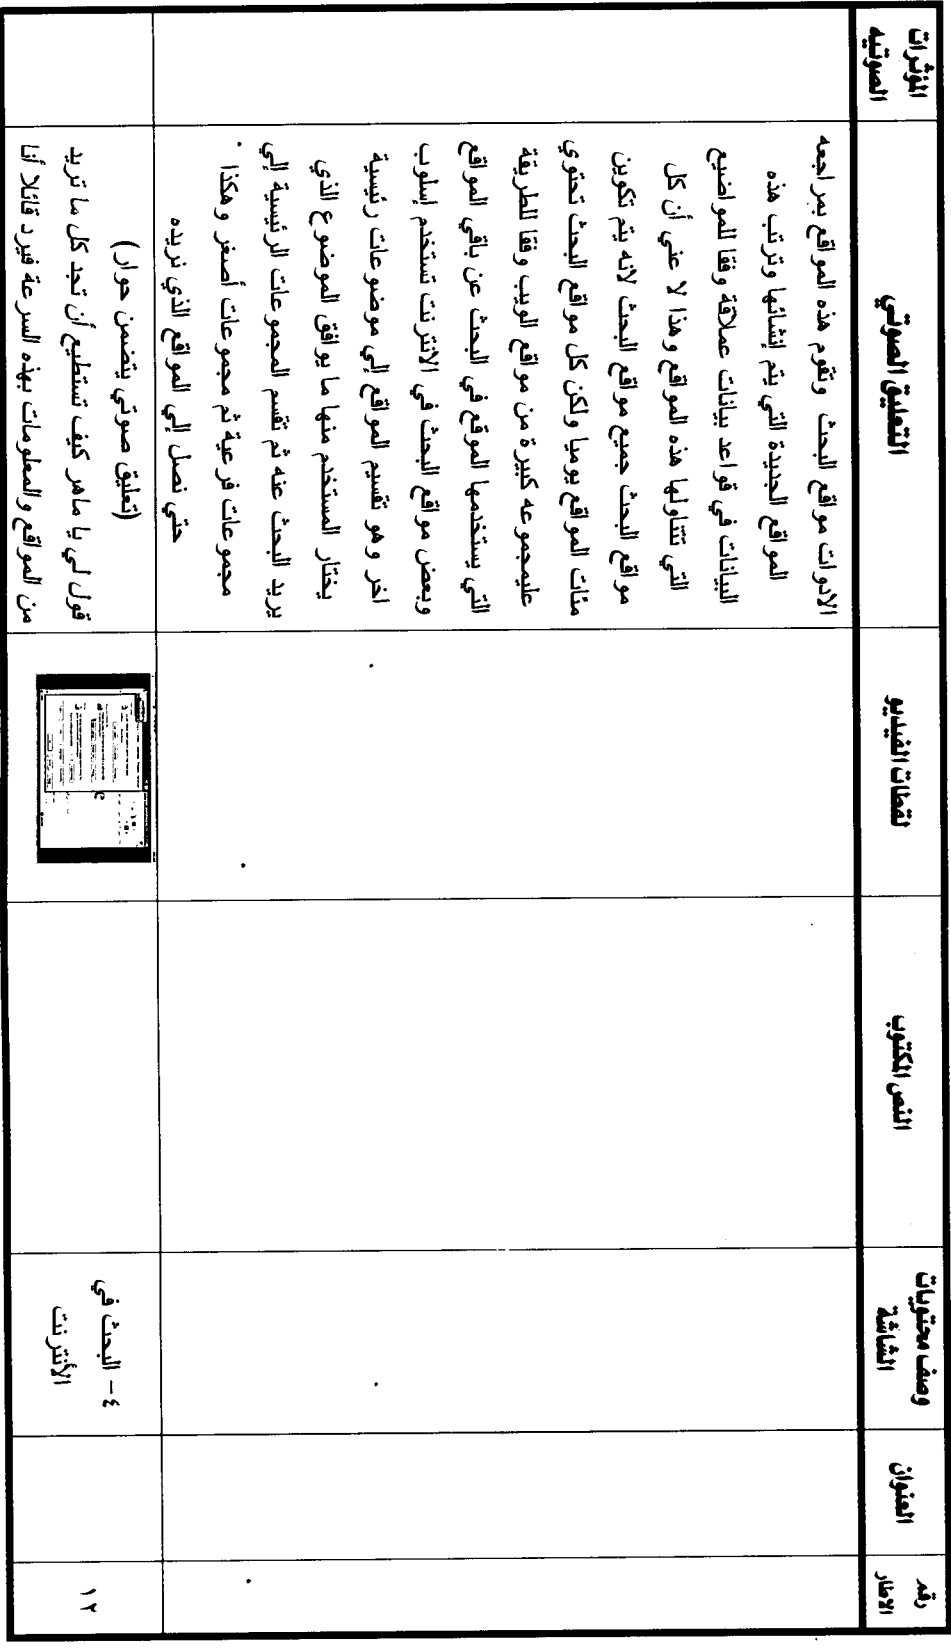 رقم
الاطار
العنوان
وصف محتويات
الشاشة
النص المكتوب
لقطات الفيديو
التعليق الصوتي
المؤثرات
الصوتيه
الادوات مواقع البحث وتقوم هذه المواقع بمراجعه
المواقع الجديدة التي يتم إنشائها وترتب هذه
البيانات في قواعد بيانات عملاقة وفقا للمواضيع
التي تتناولها هذه المواقع وهذا لا عني أن كل
مواقع البحث جميع مواقع البحث لانه يتم تكوين
مئات المواقع يوميا ولكن كل مواقع البحث تحتوي
عليمجموعه كبيرة من مواقع الويب وفقا للطريقة
التي يستخدمها الموقع في البحث عن باقي المواقع
وبعض مواقع البحث في الانترنت تستخدم إسلوب
اخر وهو تقسيم المواقع إلي موضوعات رئيسية
يختار المستخدم منها ما يوافق الموضوع الذي
يريد البحث عنه ثم تقسم المجموعات الرئيسية إلي
مجموعات فرعية ثم مجموعات أصغر وهكذا .
حتي نصل إلي المواقع الذي نريده
١٢
٤- البحث في
الأنترنت
(تعليق صوتي يتضمن حوار)
قول لي يا ماهر كيف تستطيع أن تجد كل ما تريد
من المواقع والمعلومات بهذه السرعة فيرد قائلا أنا